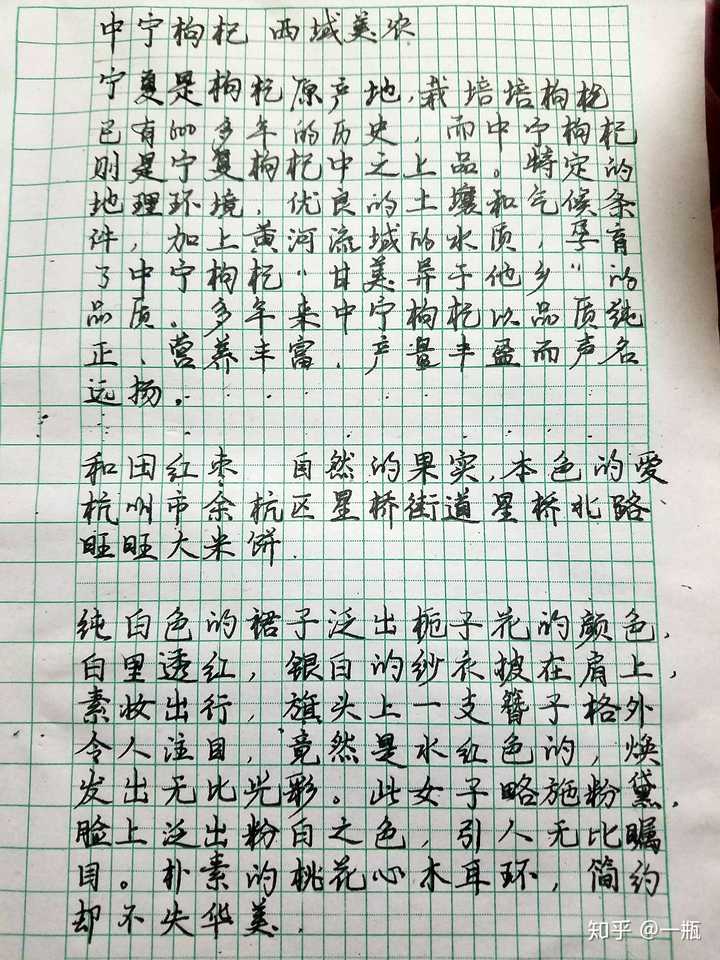 中宁枸杞 西域美农
宁夏是枸杞原产地,栽培培枸杞
已有600多年的历史,而中宁枸杞
则是宁夏枸杞中之上品。特定的
地理环境,优良的土壤和气候条
件,加上黄河流域的水质,孕育
了中宁枸杞“甘美异于他乡”的
品质。多年来中宁枸杞以品质纯
正、营养丰富,产量丰盈而声名
远扬。
和田红枣 自然的果实,本色的爱
杭州市余杭区星桥街道星桥北路
旺旺大米饼.
纯白色的裙子泛出栀子花的颜色,
白里透红,银白的纱衣披在肩上,
素妆出行,旗头上一支簪子格外
令人注目,竟然是水红色的,焕
发出无比光彩。此女子略施粉黛,
脸上泛出粉白之色,引人无比瞩
目。朴素的桃花心木耳环,简约
却不失华美.
知乎 @一瓶